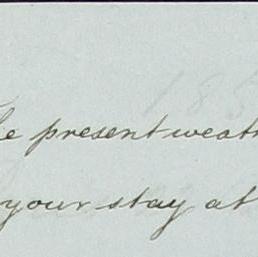 he present weath
your stay at